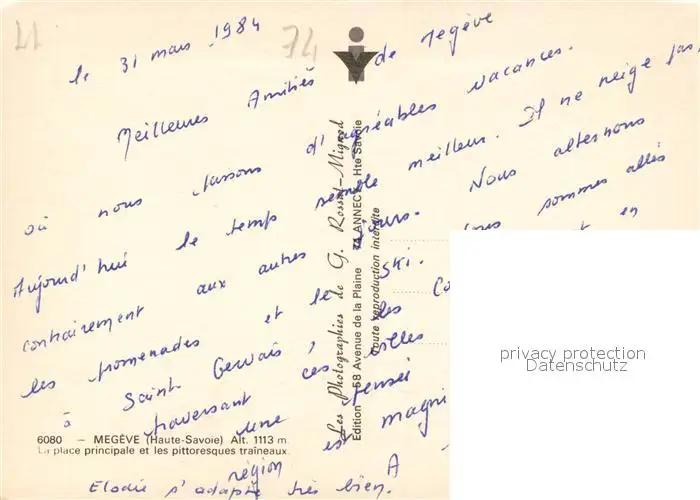 74
le 31 mars 1984
Meilleures Amitiés de Megève
où nous passons d'agréables vacances.
Aujourd'hui le temps semble meilleur. Il ne neige pas,
contrairement aux autres jours. Nous alternons
les promenades et le ski. sommes allés
à Saint Gervais, en
traversant ces villes
une région
Elodie s'adapte très bien. A
6080 — MEGÈVE (Haute-Savoie) Alt. 1113 m.
La place principale et les pittoresques traîneaux.
Les Photographies de G. Rossat-Mignod
Edition — 58 Avenue de la Plaine 74 ANNECY Hte Savoie
Toute reproduction interdite
privacy protection
Datenschutz